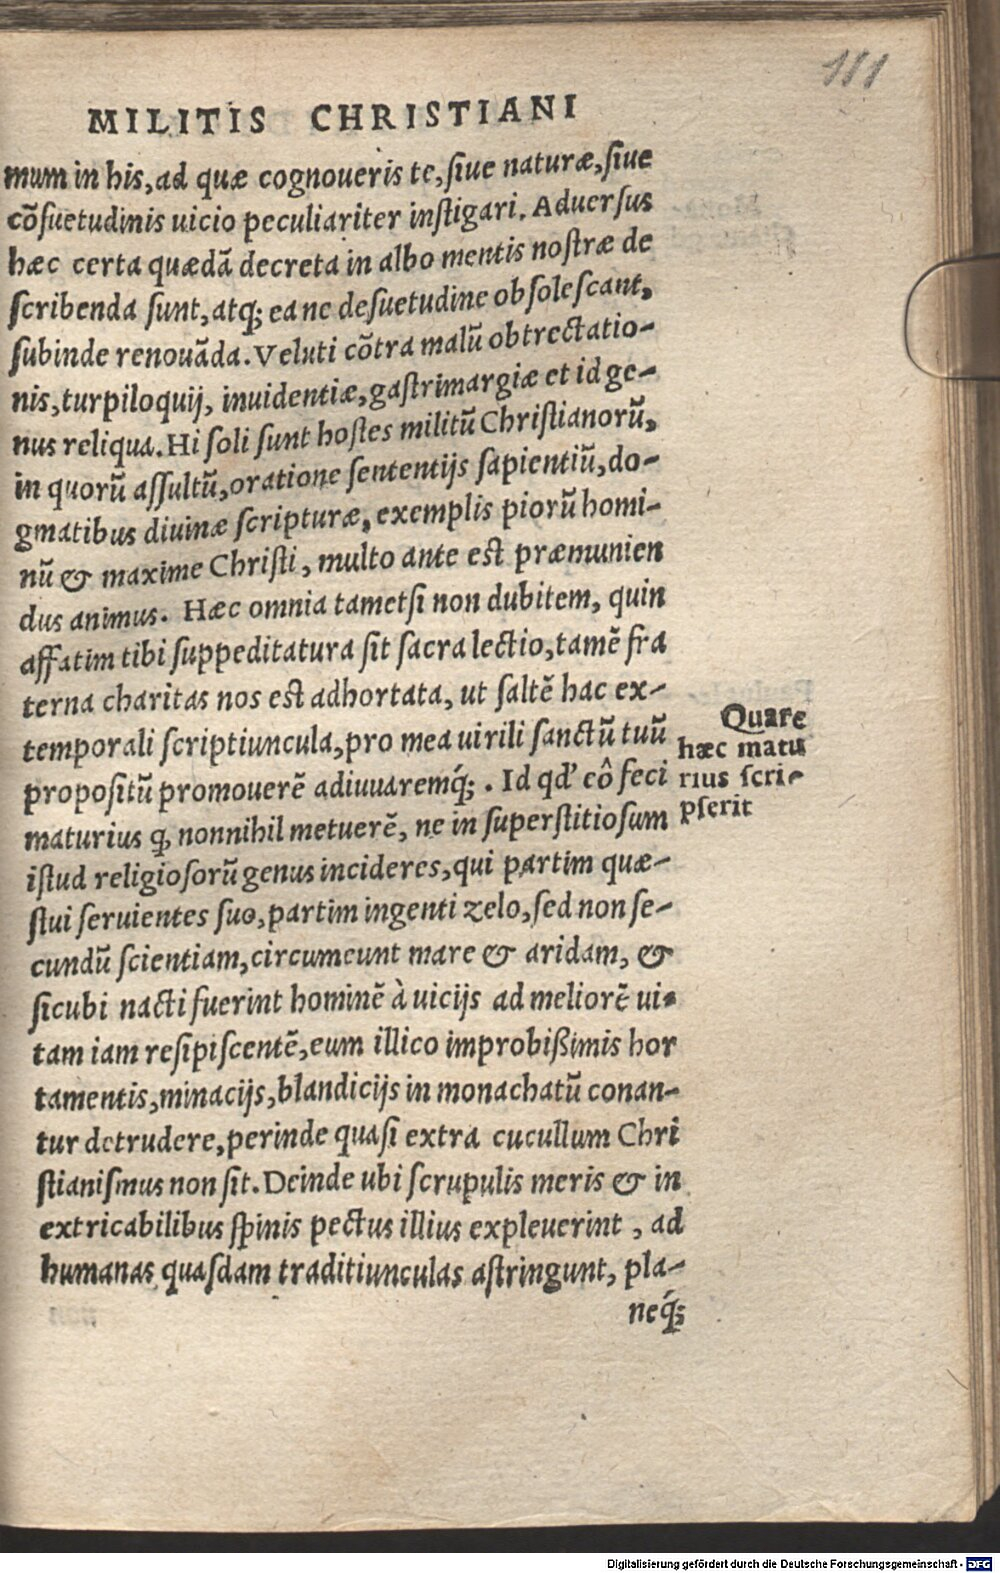 111
MILITIS CHRISTIANI
mum in his, ad quæ cognoueris te, ſiue naturæ, ſiue
cõſuetudinis uicio peculiariter inſtigari. Aduerſus
hæc certa quædã decreta in albo mentis noſtræ de
ſcribenda ſunt, atq; ea ne deſuetudine obſoleſcant,
ſubinde renouãda. Veluti cõtra malũ obtrectatio-
nis, turpiloquij, inuidentiæ, gaſtrimargiæ et id ge-
nus reliqua. Hi ſoli ſunt hoſtes militũ Chriſtianorũ,
in quorũ aſſultũ, oratione ſententijs ſapientiũ, do-
gmatibus diuinæ ſcripturæ, exemplis piorũ homi-
nũ & maxime Chriſti, multo ante eſt præmunien
dus animus. Hæc omnia tametſi non dubitem, quin
affatim tibi ſuppeditatura ſit ſacra lectio, tamẽ fra
terna charitas nos eſt adhortata, ut ſaltẽ hac ex-
temporali ſcriptiuncula, pro mea uirili ſanctũ tuũ
propoſitũ promouerẽ adiuuaremq́;. Id qd' eô feci
maturius q, nonnihil metuerẽ, ne in ſuperſtitioſum
iſtud religioſorũ genus incideres, qui partim quæ-
ſtui ſeruientes ſuo, partim ingenti zelo, ſed non ſe-
cundũ ſcientiam, circumeunt mare & aridam, &
ſicubi nacti fuerint hominẽ à uicijs ad meliorẽ ui-
tam iam reſipiſcentẽ, eum illico improbißimis hor
tamentis, minacijs, blandicijs in monachatũ conan-
tur detrudere, perinde quaſi extra cucullum Chri
ſtianiſmus non ſit. Deinde ubi ſcrupulis meris & in
extricabilibus ſpinis pectus illius expleuerint, ad
humanas quaſdam traditiunculas aſtringunt, pla-
neq́;
Quare
hæc matu
rius ſcri-
pſerit
Digitalisierung gefördert durch die Deutsche Forschungsgemeinschaft - DFG